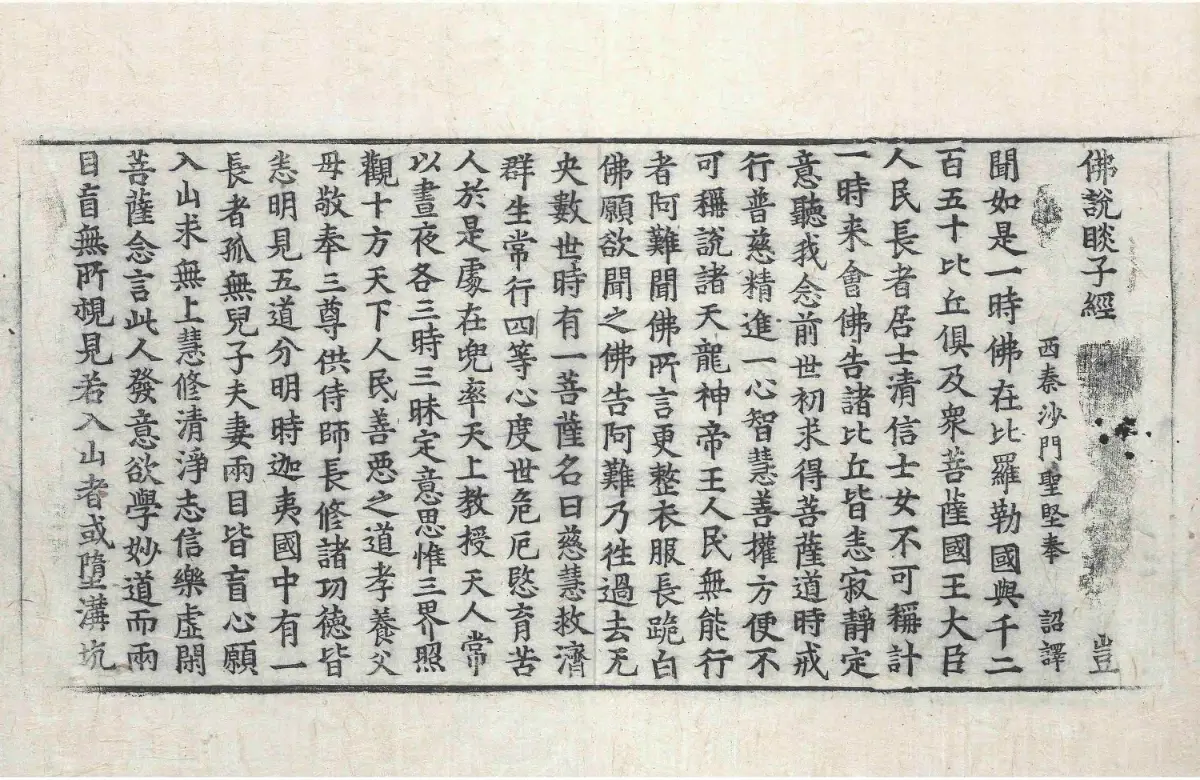 佛說睒子經 豈
西秦沙門聖堅奉 詔譯
聞如是一時佛在比羅勒國與千二
百五十比丘俱及衆菩薩國王大臣
人民長者居士清信士女不可稱計
一時来會佛告諸比丘皆悉寂靜定
意聽我念前世初求得菩薩道時戒
行普慈精進一心智慧善權方便不
可稱說諸天龍神帝王人民無能行
者阿難聞佛所言更整衣服長跪白
佛願欲聞之佛告阿難乃徃過去无
央數世時有一菩薩名曰慈慧救濟
群生常行四等心度世危厄愍育苦
人於是處在兜率天上教授天人常
以晝夜各三時三昧定意思惟三界照
觀十方天下人民善惡之道孝養父
母敬奉三尊供侍師長修諸功德皆
悉明見五道分明時迦夷國中有一
長者孤無兒子夫妻兩目皆盲心願
入山求無上慧修清淨志信樂虛閑
菩薩念言此人發意欲學妙道而兩
目盲無所覩見若入山者或墮溝坑